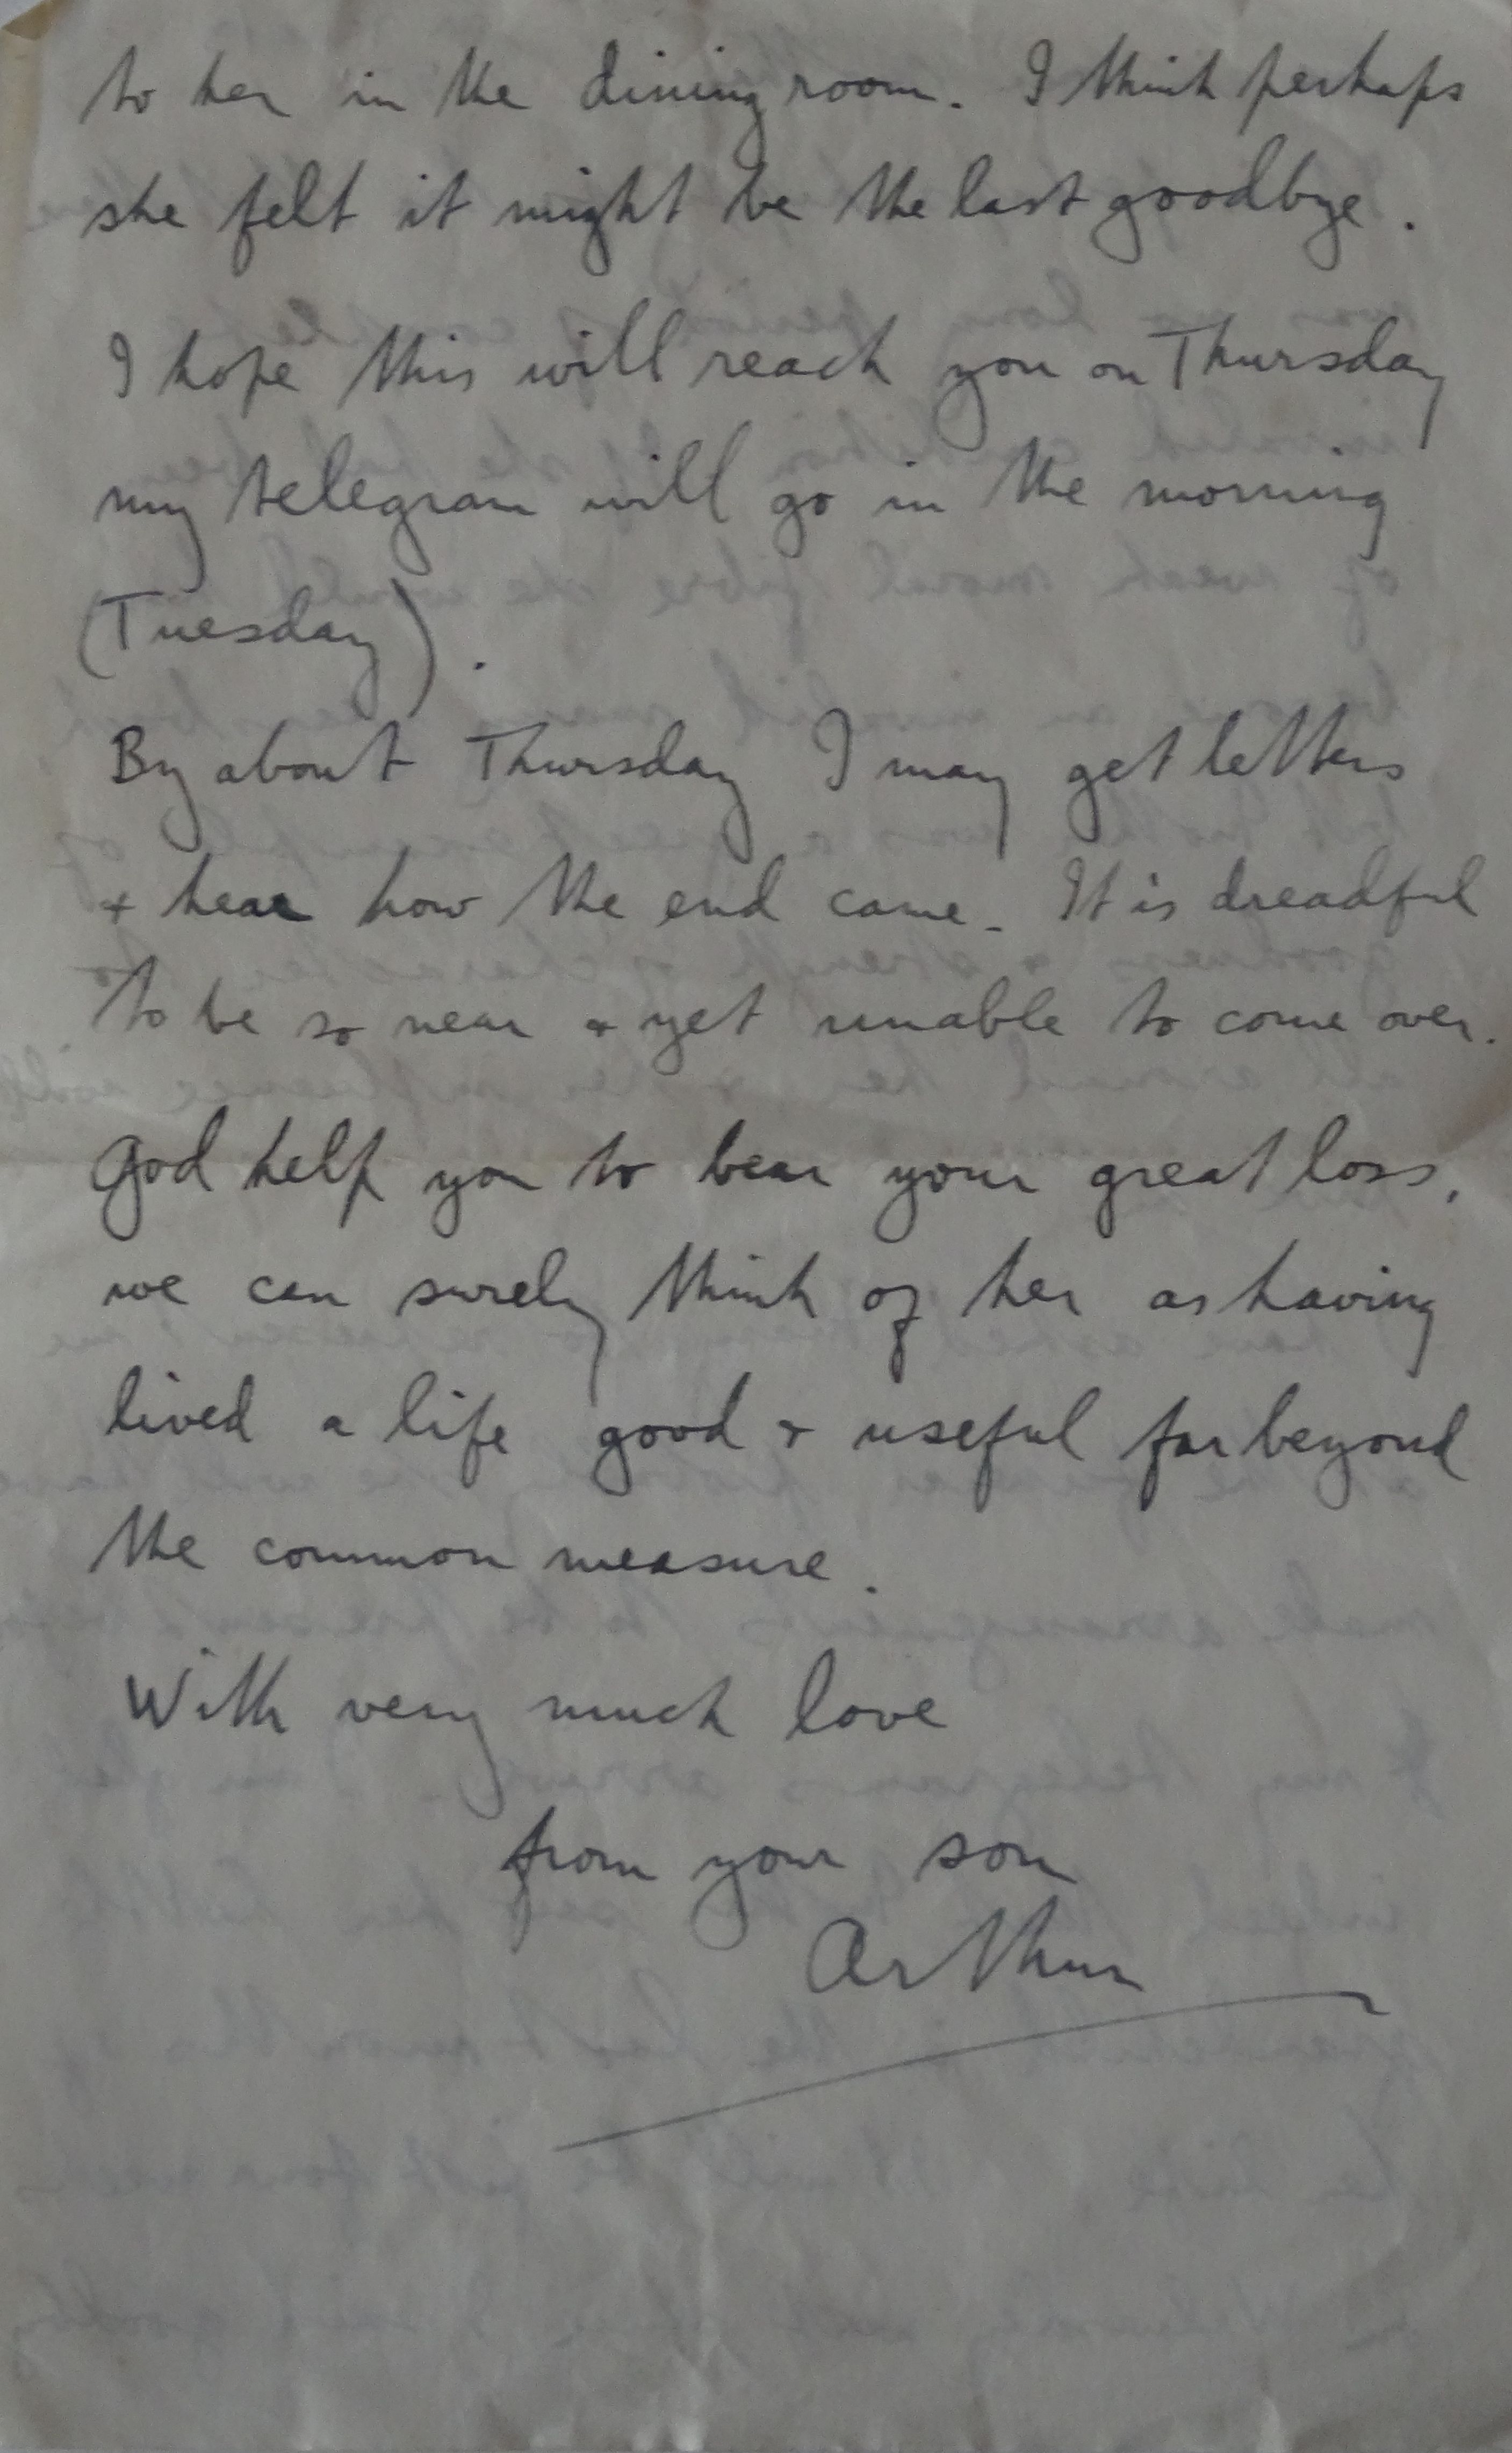 to her in the dining room. I think perhaps
she felt it might be the last goodbye.
I hope this will reach you on Thursday
my telegram will go in the morning
(Tuesday).
By about Thursday I may get letters
+ hear how the end came. It is dreadful
to be so near + yet unable to come over.
God help you to bear your great loss,
we can surely think of her as having
lived a life good + useful far beyond
the common measure.
With very much love
from your son
Arthur